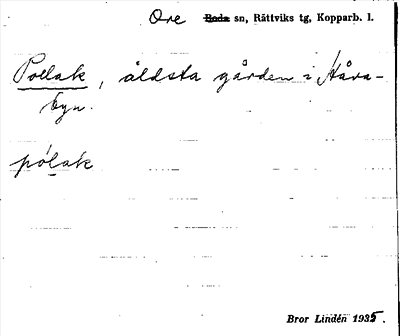 Ore Boda sn, Rättviks tg, Kopparb. l.
Pollak, äldsta gården i Håra-
byn.
pólak
Bror Lindén 1935.